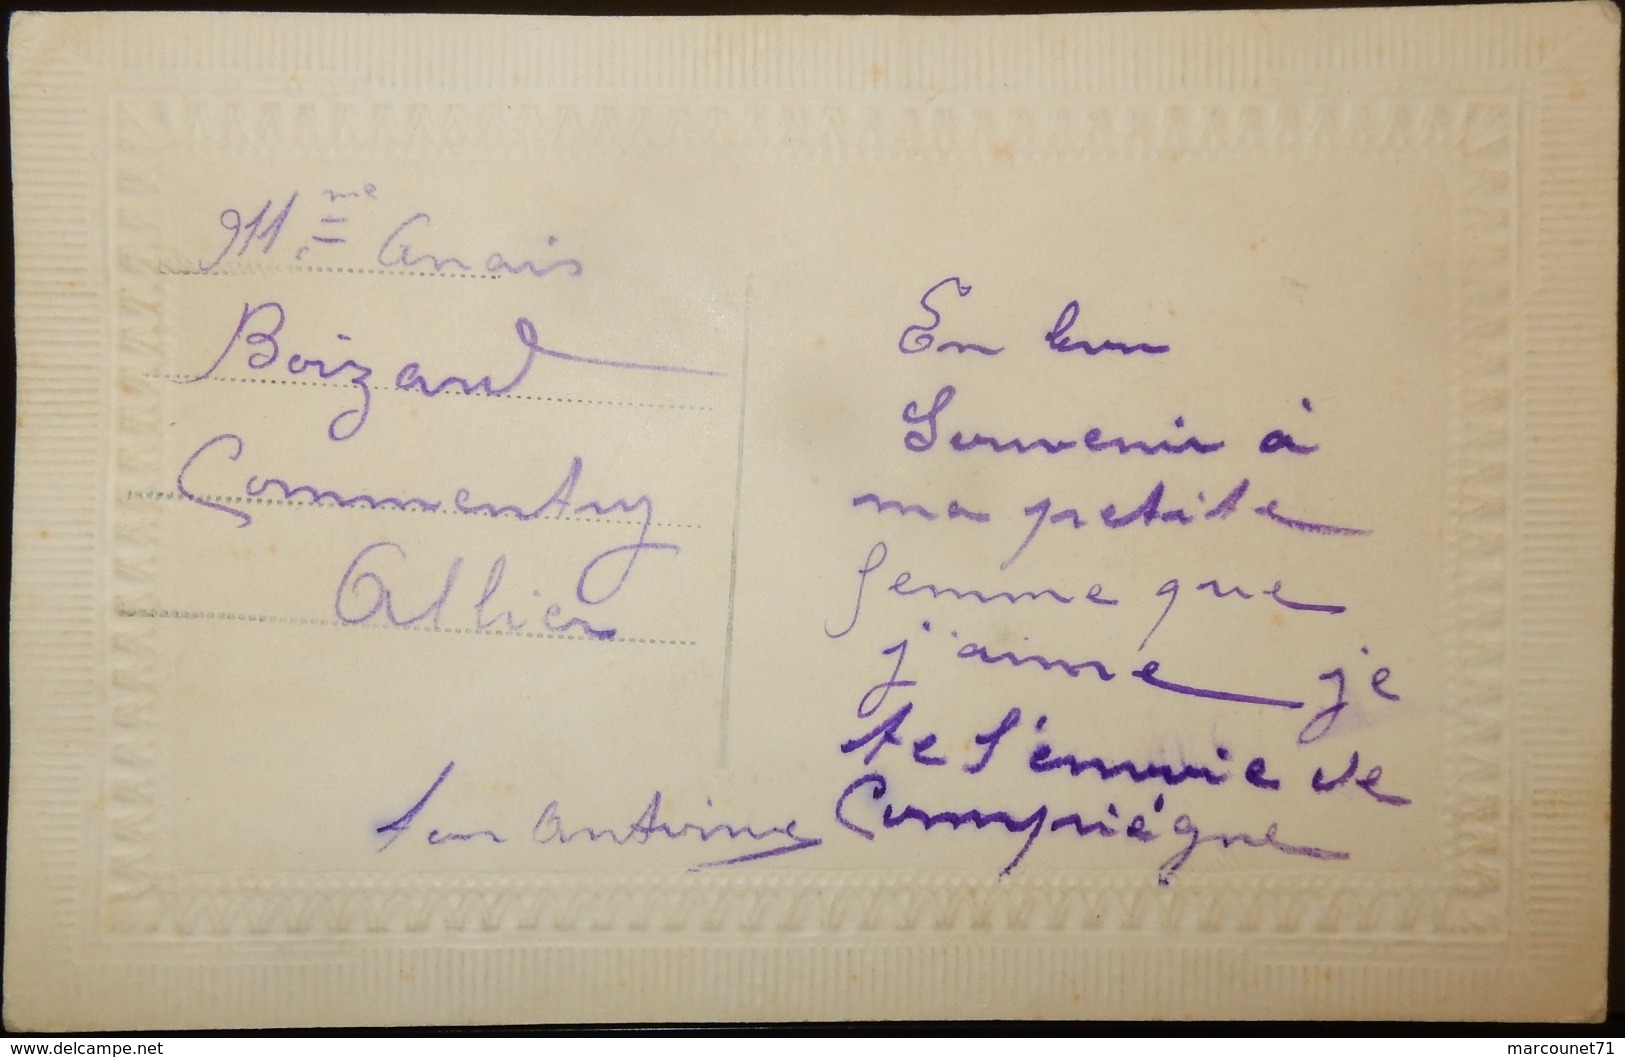 Mme Anais
Boizard
Commentry
Allier
En bon
Souvenir à
ma petite
femme que
j'aime je
te l'envoie de
Compiégne
ton Antoine
www.delcampe.net
marcounet71